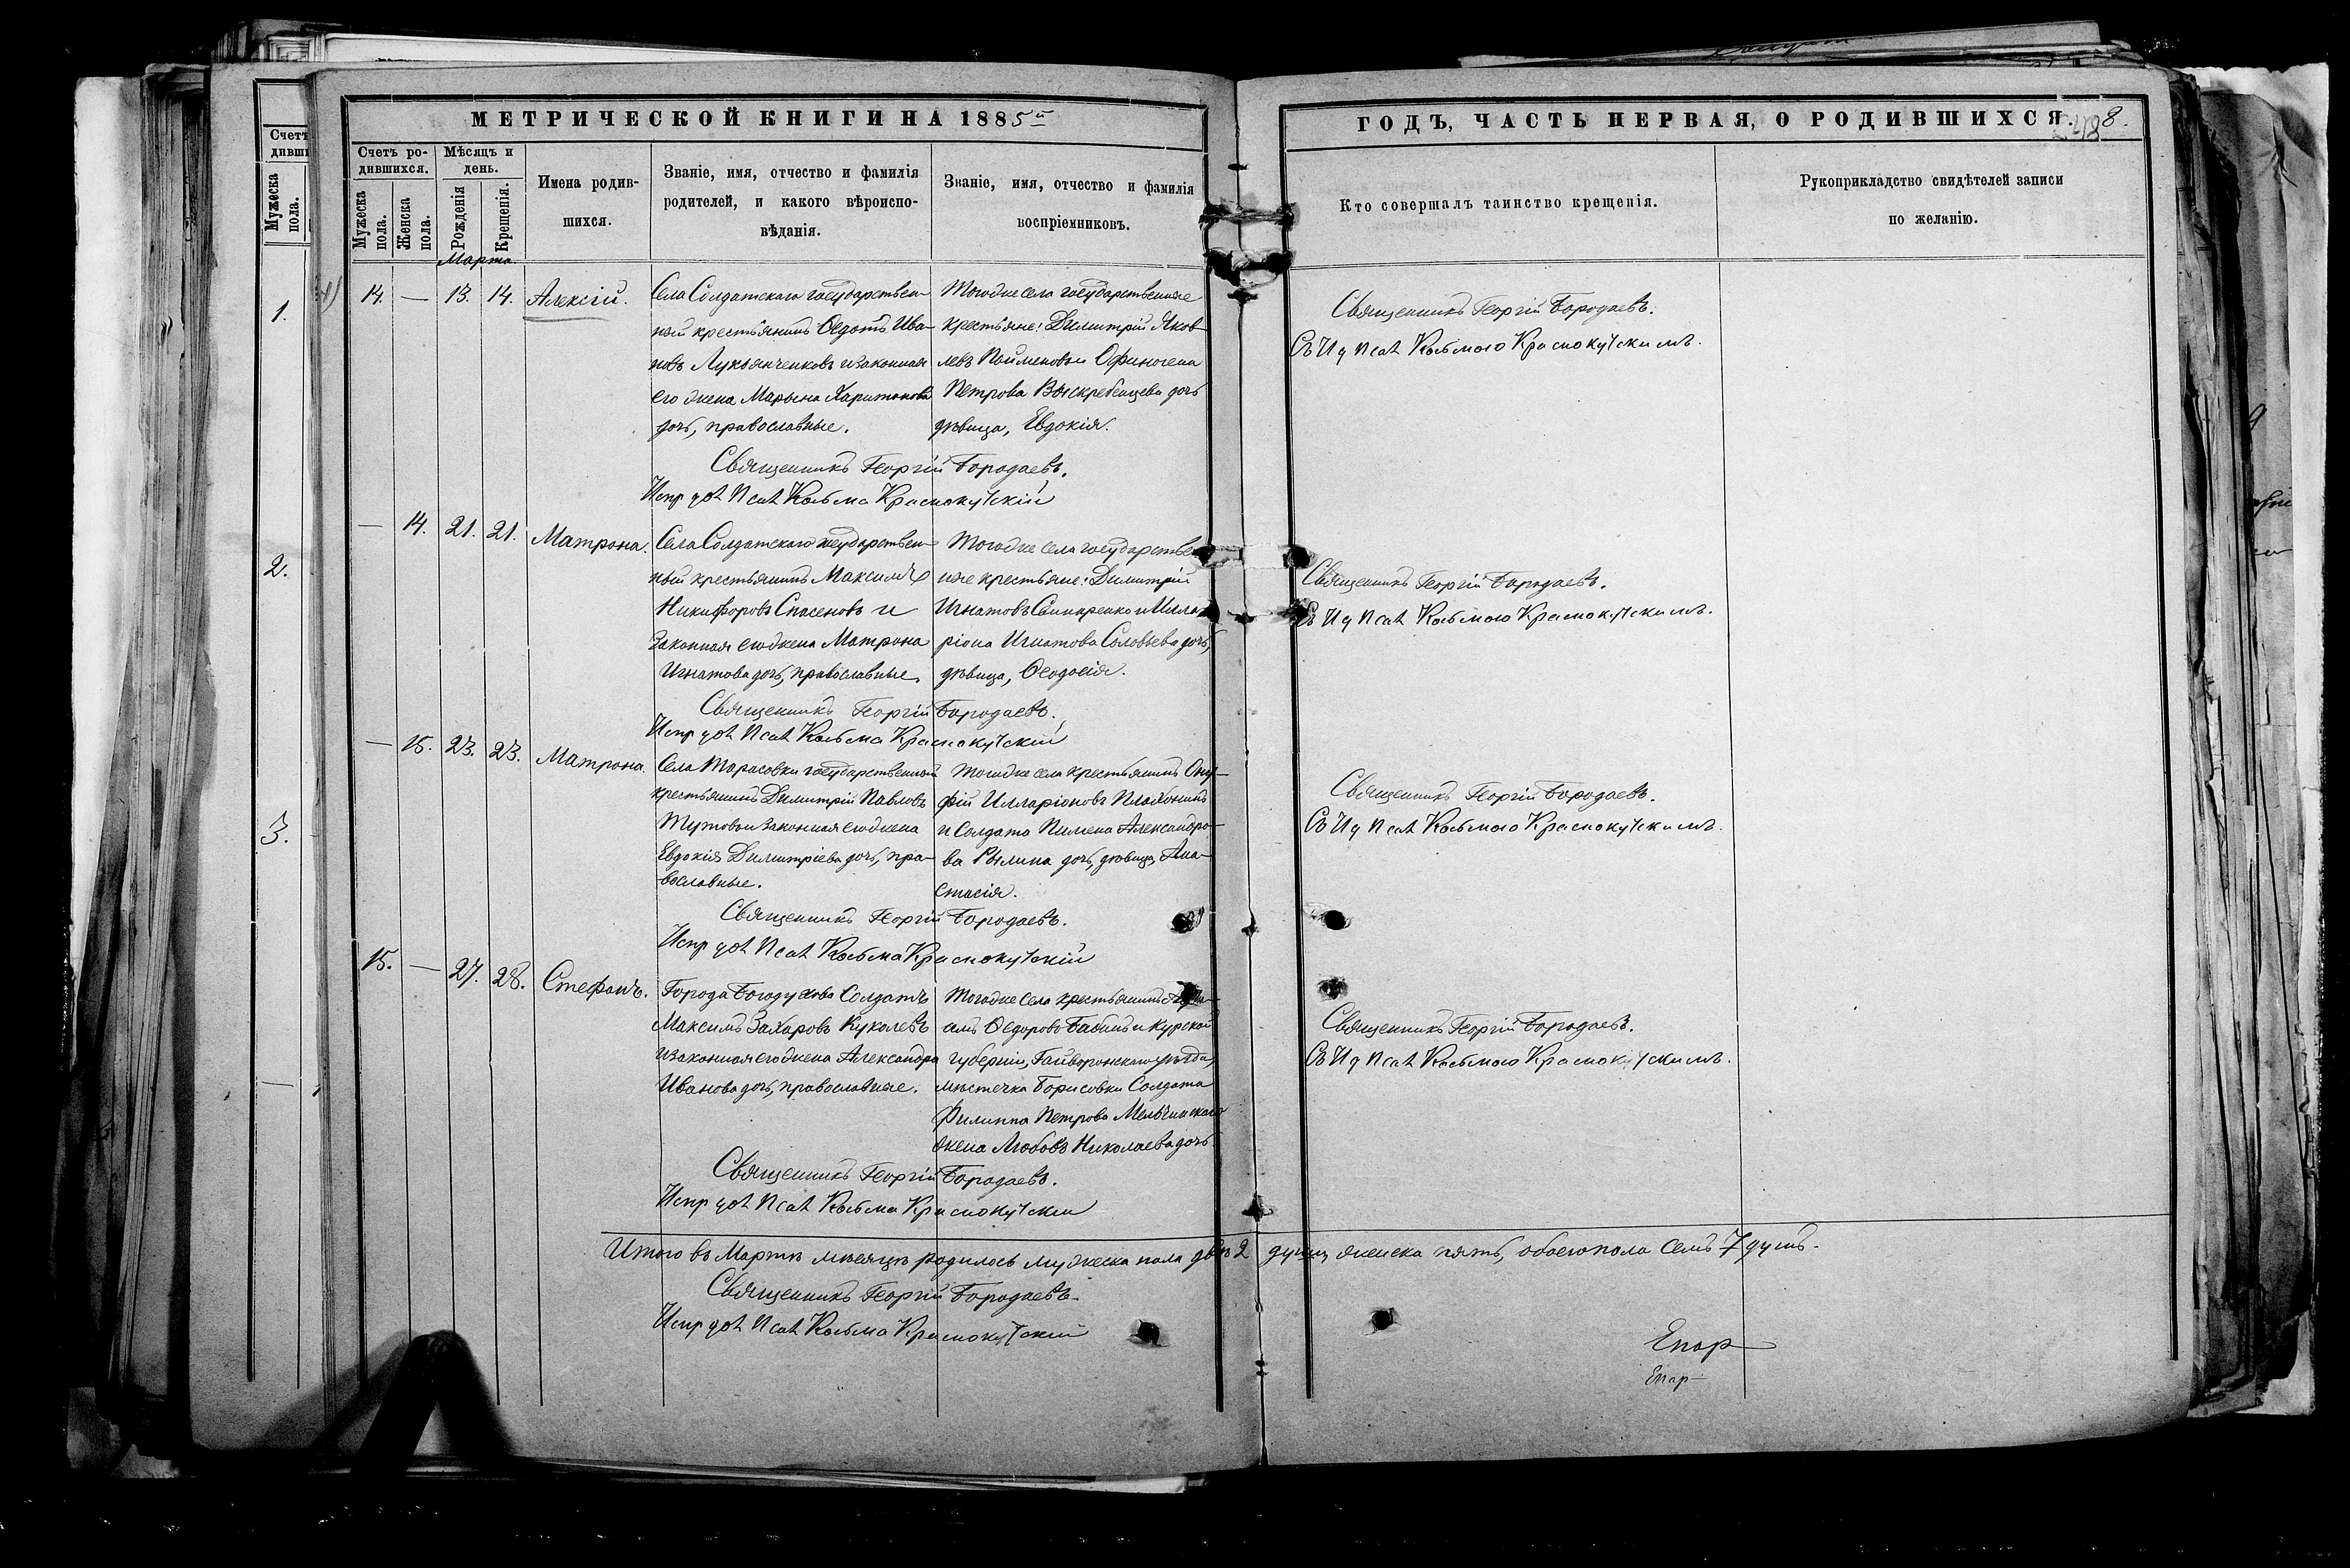 МЕТРИЧЕСКОЙ КНИГИ НА 1885й
ГОДЪ, ЧАСТЬ ПЕРВАЯ, О РОДИВШИХСЯ.
8.
Счетъ ро-
дившихся.
Мѣсяцъ и
день.
Мужеска пола.
Женска пола.
Рожденія
Крещенія.
Имена родив-
шихся.
Званіе, имя, отчество и фамилія
родителей, и какого вѣроиспо-
вѣданія.
Званіе, имя, отчество и фамилія
воспріемниковъ.
Кто совершалъ таинство крещенія.
Рукоприкладство свидѣтелей записи
по желанію.
Счетъ
дивши
Мужеска пола.
1.
2.
3.
Марта
14. — 13. 14. Алексій.
Села Солдатскаго государствен-
ный крестьянинъ Ѳедотъ Ива-
новъ Лукьянченковъ и законная
его жена Марьяна Харитонова
дочь, православные.
Тогоже села государственные
крестьяне: Димитрій Яков-
левъ
Петрова Выскребенцева дочь
дѣвица, Евдокія.
Священникъ Георгій Бородаевъ.
Испр дол Псал Козьма Краснокутскій
Священникъ Георгій Бородаевъ.
Съ И д Псал Козьмою Краснокутскимъ.
— 14. 21. 21. Матрона.
Села Солдатскаго государствен-
ный крестьянинъ Максимъ
Никифоровъ Спасеновъ и
законная его жена Матрона
Игнатова дочь, православные.
Тогоже села государствен
ные крестьяне: Димитрій
Игнатовъ и Илла
ріона Игнатова Соловьева дочь,
дѣвица, Ѳеодосія.
Священникъ Георгій Бородаевъ.
Испр дол Псал Козьма Краснокутскій
Священникъ Георгій Бородаевъ.
Съ И д Псал Козьмою Краснокутскимъ.
— 15. 23. 23. Матрона.
Села Тарасовки государственный
крестьянинъ Димитрій Павловъ
законная его жена
Евдокія Димитріева дочь, пра-
вославные.
Тогоже села крестьянинъ Ону-
фрій Илларіоновъ
и Солдата Пимена Александро-
ва Рылина дочь, дѣвица, Ана-
стасія.
Священникъ Георгій Бородаевъ.
Испр дол Псал Козьма Краснокутскій
Священникъ Георгій Бородаевъ.
Съ И д Псал Козьмою Краснокутскимъ.
15. — 27. 28. Стефанъ.
Города Богодухова Солдатъ
Максимъ Захаровъ Куколевъ
и законная его жена Александра
Иванова дочь, православные.
Тогоже села крестьянинъ
Ѳедоровъ Бабинъ и Курской
губерніи, Гайворонскаго уѣзда,
мѣстечка Борисовки Солдата
Филиппа Петрова
жена Любовь Николаева дочь
Священникъ Георгій Бородаевъ.
Испр дол Псал Козьма Краснокутскій
Священникъ Георгій Бородаевъ.
Съ И д Псал Козьмою Краснокутскимъ.
Итого въ Мартѣ мѣсяцѣ родилось мужеска пола двѣ 2 души, женска пять, обоего пола семь 7 душъ.
Священникъ Георгій Бородаевъ.
Испр дол Псал Козьма Краснокутскій